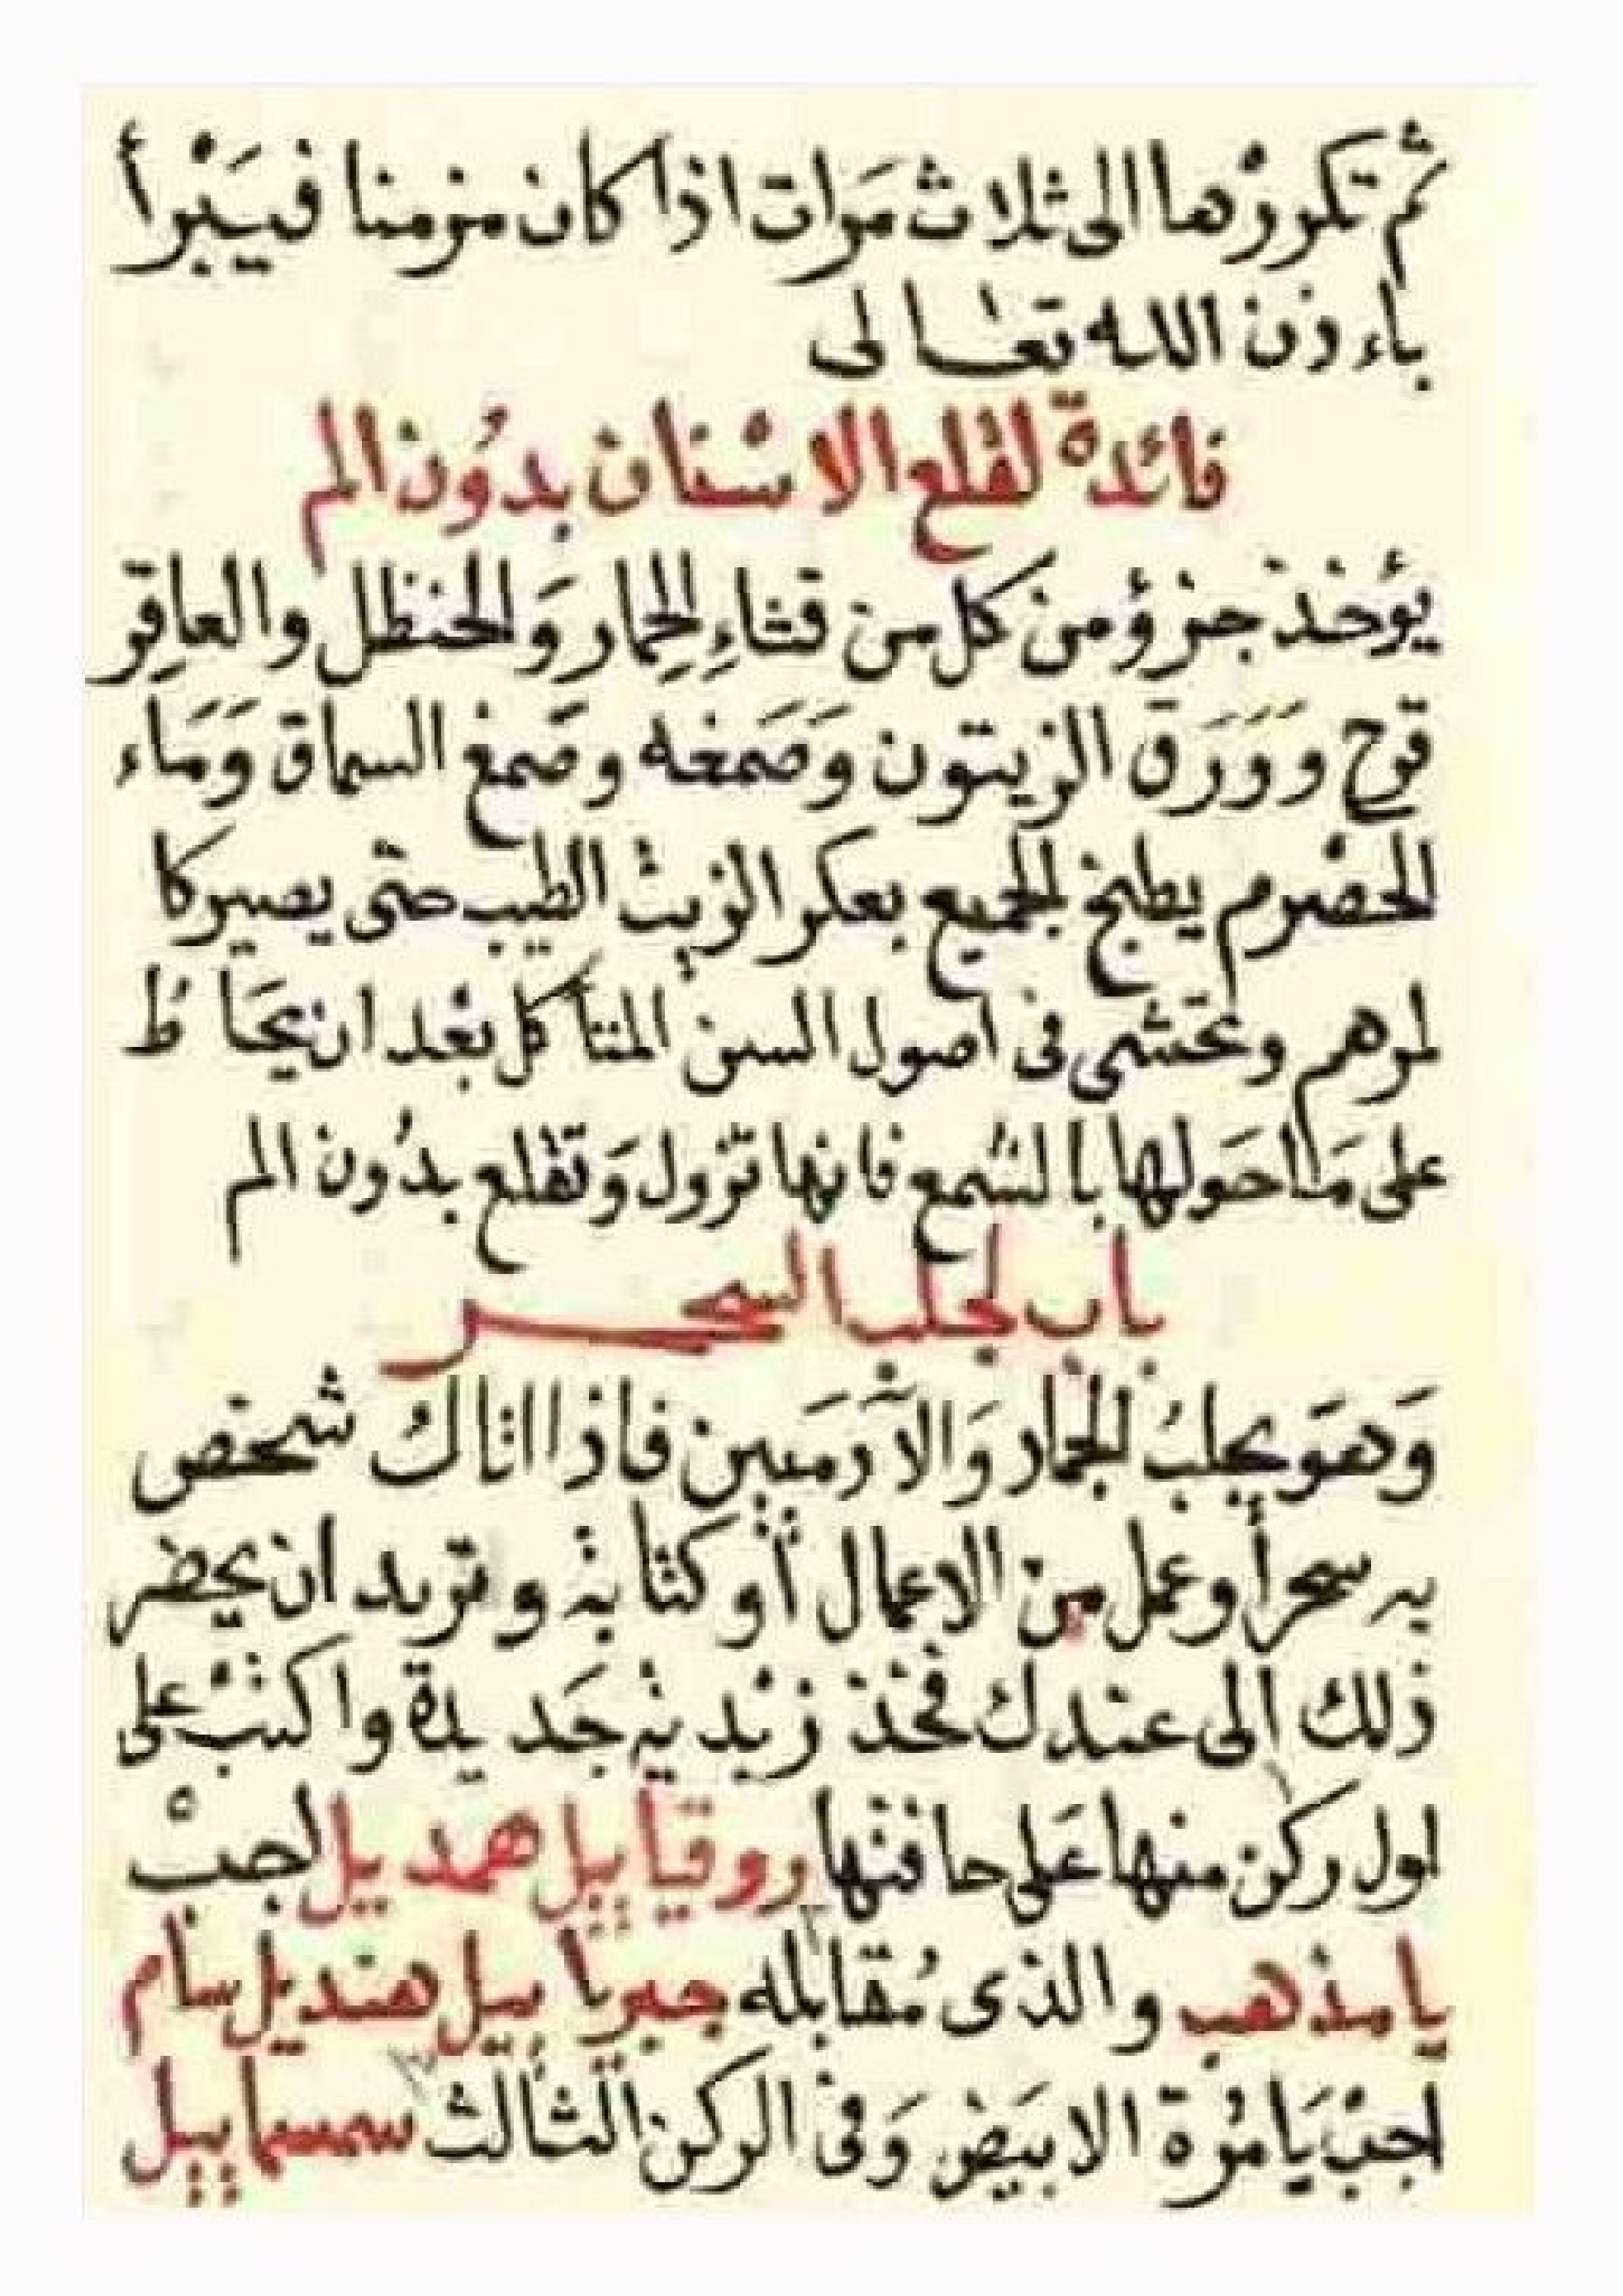 ثم تكررْها الى ثلاث مَرات اذا كان مزمنا فيَبْرأ
باءذن الله تعالى
فائدة لقلع الاسْنان بدُون الم
يؤخذ جزؤ من كل من قثاءِ الحِمار وَالحنظل والعاقِر
قرح ووَرَق الزيتون وَصَمغه وصَمغ السماق وَمَاء
الحصْرم يطبخ الجميع بعكر الزيت الطيب حتى يصير كا
لمرهم وتحَشى فى اصول السن المتأكل بعْد ان يحَاطُ
على مَا حَولها بالشمع فانها تزول وَتقلع بدُون الم
باب لجلب السحر
وَهوَ يجلبُ الجمار وَالآدمَيين فاذا اتاكُ شخص
به سحر أوعمل من الاعمال أو كتابة وتريد ان يحضر
ذلك الى عندك فخذ زبْدية جَديدة واكتبْ على
اول ركن منها عَلى حافتها روقيَاييل همديل اجبْ
يا مذهب والذى مُقابله جبرياييل هنديل سام
اجبْ يَا مُرة الابيَض وَفى الركن الثالث سمسماييل